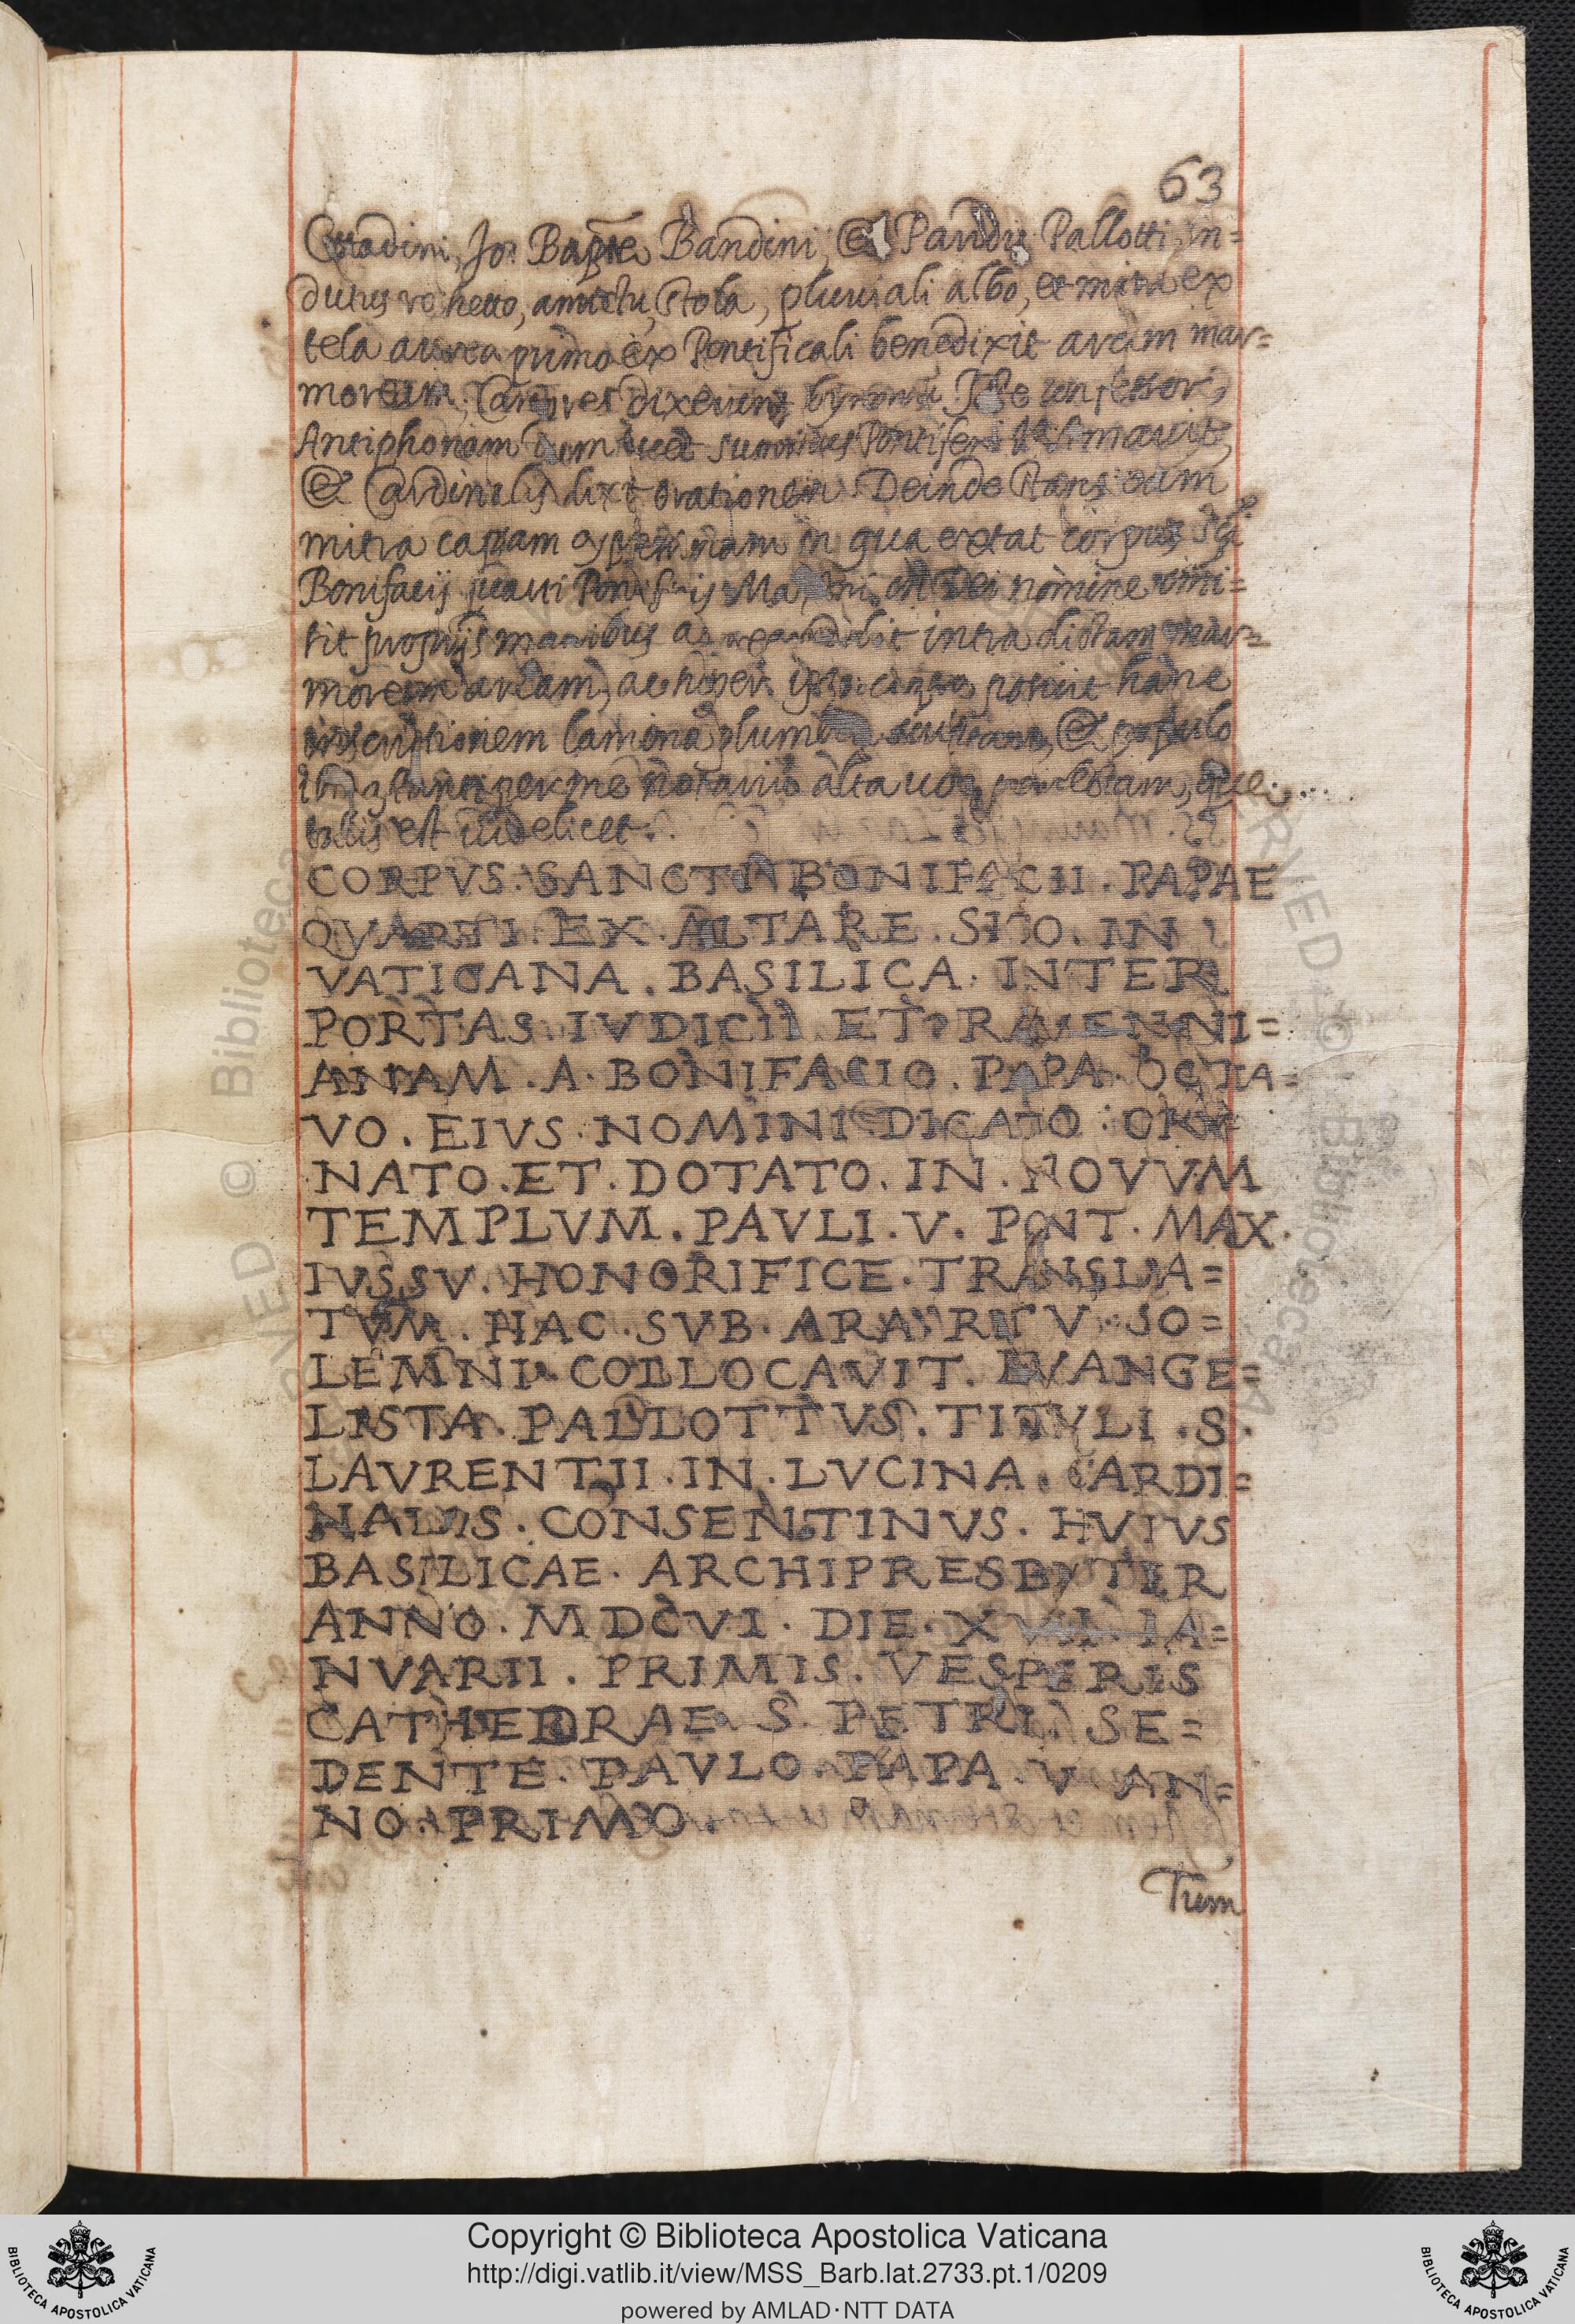 63
Cittadini, Jo: Bapte Bandini, & Pauli Pallotti, in=
dutus rochetto, amictu, stola, pluviali albo, et mitra ex
tela aurea primo ex Pontificali benedixit arcam mar=
moream, Cantores dixerunt hymnum Iste confessor,
Antiphonam Dum esset summus Pontifex
& Cardinalis dixit orationem. Deinde stans cum
mitra capsam cypressinam in qua extat corpus Sci
Bonifacij quarti Pontificis Maximi in Dei nomine
proprijs manibus intra dictam mar=
moream arcam, ac super posuit hanc
inscriptionem lamina plumbea & populo
per me notarium alta uoce que
talis est uidelicet.
CORPVS. SANCTI BONIFACII. PAPAE
QVARTI. EX. ALTARE. SITO. IN
VATICANA. BASILICA. INTER
PORTAS. IVDICII ET. RAVENNI=
ANAM. A. BONIFACIO. PAPA. OCTA=
VO. EIVS. NOMINI DICATO. OR=
NATO. ET. DOTATO. IN. NOVVM
TEMPLVM. PAVLI. V. PONT. MAX.
IVSSV. HONORIFICE. TRANSLA=
TVM. HAC. SVB. ARA. RITV. SO=
LEMNI. COLLOCAVIT. EVANGE=
LISTA. PALLOTTVS. TITVLI. S.
LAVRENTII. IN. LVCINA. CARDI=
NALIS. CONSENTINVS. HVIVS
BASILICAE. ARCHIPRESBYTER
ANNO. MDCVI. DIE. XVII. IA=
NVARII. PRIMIS. VESPERIS
CATHEDRAE. S. PETRI. SE=
DENTE. PAVLO. PAPA. V AN=
NO. PRIMO.
Tum
Copyright © Biblioteca Apostolica Vaticana
http://digi.vatlib.it/view/MSS_Barb.lat.2733.pt.1/0209
powered by AMLAD·NTT DATA
BIBLIOTECA APOSTOLICA VATICANA
BIBLIOTECA APOSTOLICA VATICANA